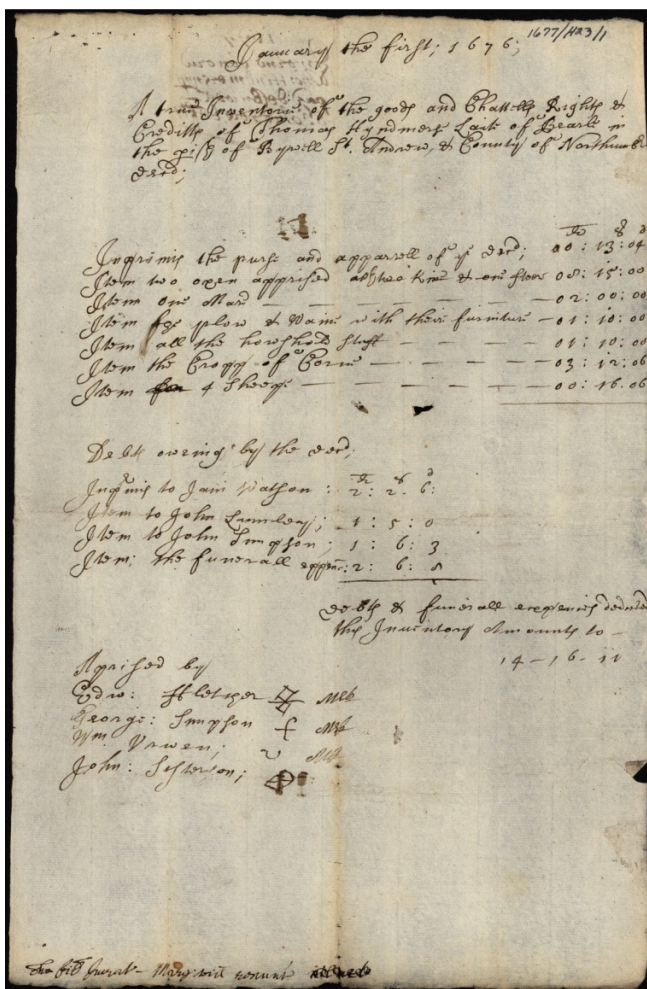 1677/H23/1
January the first; 1676;
A true Inventorie of the goods and Chattells Rights &
Creditts of Thomas Hyndmers Lait of Bearll in
the pish of Bywell St. Andrew, & County of Northumb
decd;
li s d
Inprimis the purse and apparrell of ye decd; 00:13:04
Item two oxen apprised at two Kine & one stere 08:15:00
Item one Mare — — — — — — — 02:00:00
Item plow & Waine with their furniture — 01:10:00
Item all the howshold stuff — — — — 01:10:00
Item the Cropp of Corne — — — — 03:12:06
Item 4 sheepe — — — — — — 00:16:06
Debts oweing by the decd;
li s d
Inprimis to Jain Watson : 2: 2: 6:
Item to John Lumley; 1 : 5 : 0
Item to John Simpson; 1 : 6: 3
Item; the funerall expenc: 2: 6: 8
debts & funerall expences deduc
this Inventory Amounts to —
14-16-11
Aprised by
Edw: Fletcher
George: Simpson
Wm Vrwen;
John: